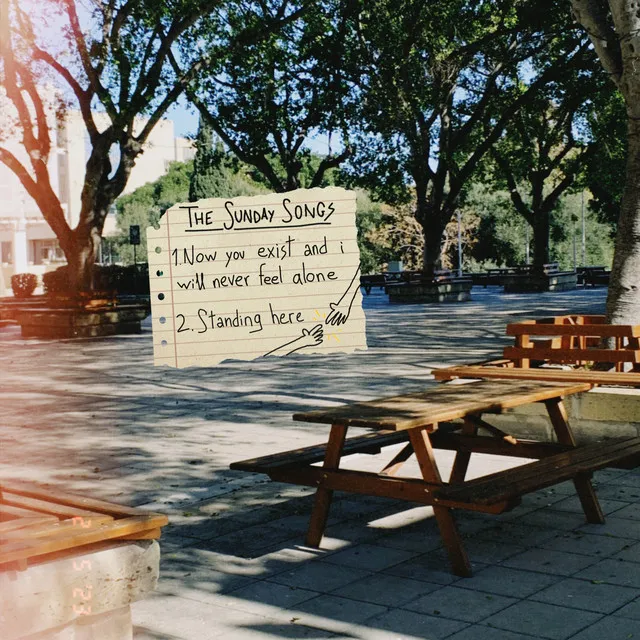 THE SUNDAY SONGS
1. Now you exist and i
will never feel alone
2. Standing here